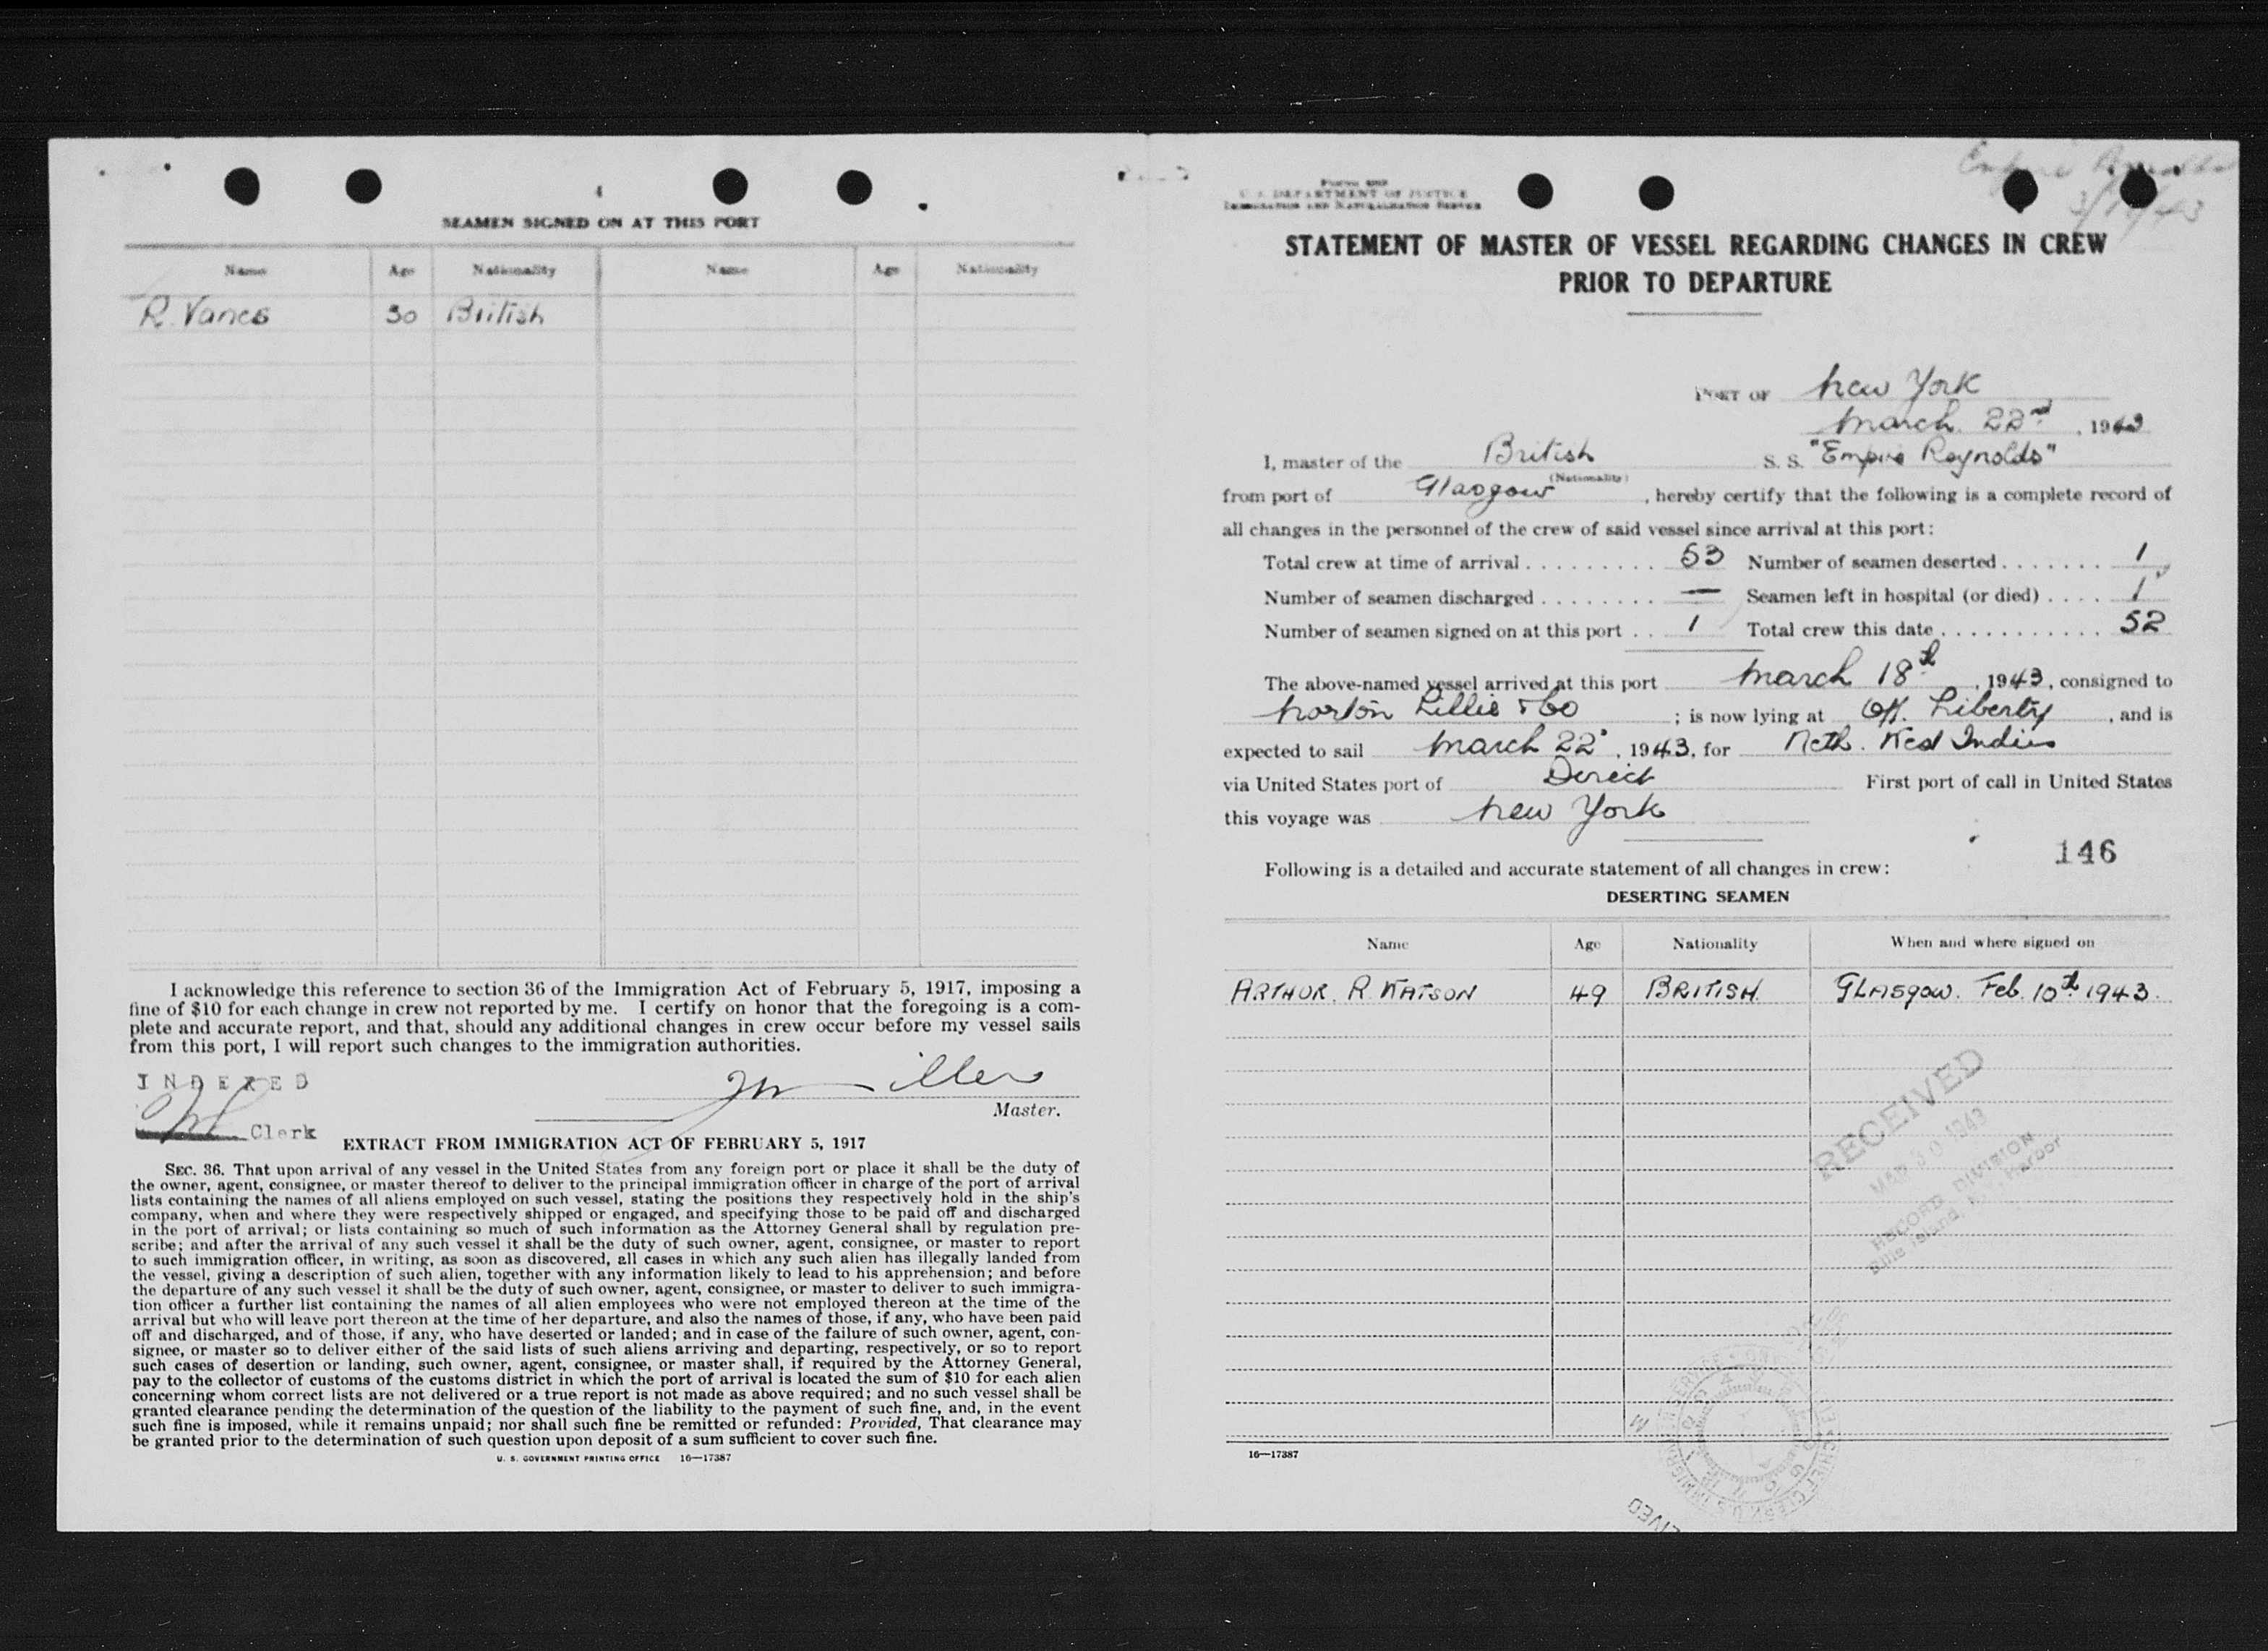 4
SEAMEN SIGNED ON AT THIS PORT
Name Age Nationality Name Age Nationality
R. Vances 30 British
I acknowledge this reference to section 36 of the Immigration Act of February 5, 1917, imposing a
fine of $10 for each change in crew not reported by me. I certify on honor that the foregoing is a com-
plete and accurate report, and that, should any additional changes in crew occur before my vessel sails
from this port, I will report such changes to the immigration authorities.
INDEXED
Master.
Clerk
EXTRACT FROM IMMIGRATION ACT OF FEBRUARY 5, 1917
SEC. 36. That upon arrival of any vessel in the United States from any foreign port or place it shall be the duty of
the owner, agent, consignee, or master thereof to deliver to the principal immigration officer in charge of the port of arrival
lists containing the names of all aliens employed on such vessel, stating the positions they respectively hold in the ship's
company, when and where they were respectively shipped or engaged, and specifying those to be paid off and discharged
in the port of arrival; or lists containing so much of such information as the Attorney General shall by regulation pre-
scribe; and after the arrival of any such vessel it shall be the duty of such owner, agent, consignee, or master to report
to such immigration officer, in writing, as soon as discovered, all cases in which any such alien has illegally landed from
the vessel, giving a description of such alien, together with any information likely to lead to his apprehension; and before
the departure of any such vessel it shall be the duty of such owner, agent, consignee, or master to deliver to such immigra-
tion officer a further list containing the names of all alien employees who were not employed thereon at the time of the
arrival but who will leave port thereon at the time of her departure, and also the names of those, if any, who have been paid
off and discharged, and of those, if any, who have deserted or landed; and in case of the failure of such owner, agent, con-
signee, or master so to deliver either of the said lists of such aliens arriving and departing, respectively, or so to report
such cases of desertion or landing, such owner, agent, consignee, or master shall, if required by the Attorney General,
pay to the collector of customs of the customs district in which the port of arrival is located the sum of $10 for each alien
concerning whom correct lists are not delivered or a true report is not made as above required; and no such vessel shall be
granted clearance pending the determination of the question of the liability to the payment of such fine, and, in the event
such fine is imposed, while it remains unpaid; nor shall such fine be remitted or refunded: Provided, That clearance may
be granted prior to the determination of such question upon deposit of a sum sufficient to cover such fine.
U. S. GOVERNMENT PRINTING OFFICE 16—17387
U. S. DEPARTMENT OF JUSTICE
IMMIGRATION AND NATURALIZATION SERVICE
STATEMENT OF MASTER OF VESSEL REGARDING CHANGES IN CREW
PRIOR TO DEPARTURE
PORT OF New York
March. 22nd, 1943
I, master of the British S. S. "Empire Reynolds"
(Nationality)
from port of Glasgow, hereby certify that the following is a complete record of
all changes in the personnel of the crew of said vessel since arrival at this port:
Total crew at time of arrival . . . . . . . . . 53 Number of seamen deserted . . . . . . . 1
Number of seamen discharged . . . . . . . . — Seamen left in hospital (or died) . . . . 1
Number of seamen signed on at this port . . 1 Total crew this date . . . . . . . . . . . 52
The above-named vessel arrived at this port March 18th, 1943, consigned to
Norton Lillie & Co; is now lying at Off. Liberty, and is
expected to sail March 22, 1943, for Neth. West Indies
via United States port of Direct First port of call in United States
this voyage was New York
146
Following is a detailed and accurate statement of all changes in crew:
DESERTING SEAMEN
Name Age Nationality When and where signed on
ARTHUR. R. WATSON 49 BRITISH. GLASgow. Feb. 10th 1943.
RECEIVED
MAR 30 1943
RECORD DIVISION
Ellis Island, N. Y. Harbor
16—17387